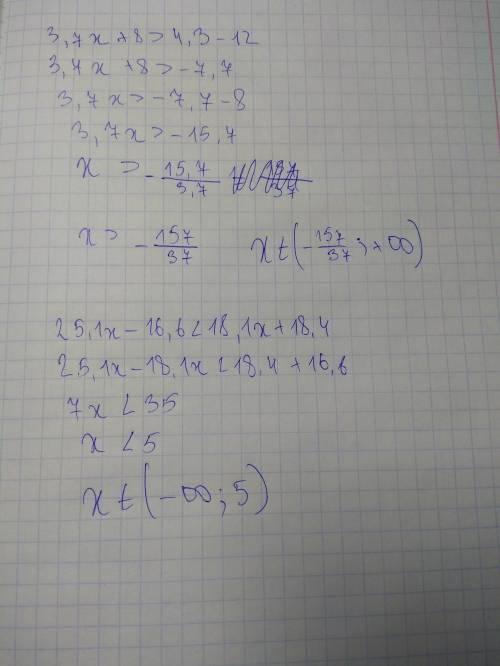 3,7x+8>4,3-12
3,7x+8>-7,7
3,7x>-7,7-8
3,7x>-15,7
x > -15,7/3,7
x> -157/37 x∈(-157/37;+∞)
25,1x-16,6<18,1x+18,4
25,1x-18,1x<18,4+16,6
7x<35
x<5
x∈(-∞;5)